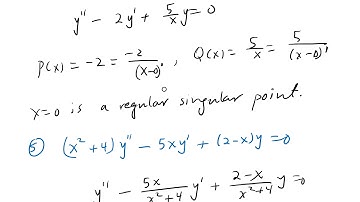 y'' - 2y' + 5/x y = 0
P(x) = -2 = -2/(x-0)⁰ , Q(x) = 5/x = 5/(x-0)¹
x=0 is a regular singular point.
⑤ (x²+4) y'' - 5xy' + (2-x)y = 0
y'' - 5x/(x²+4) y' + (2-x)/(x²+4) y = 0